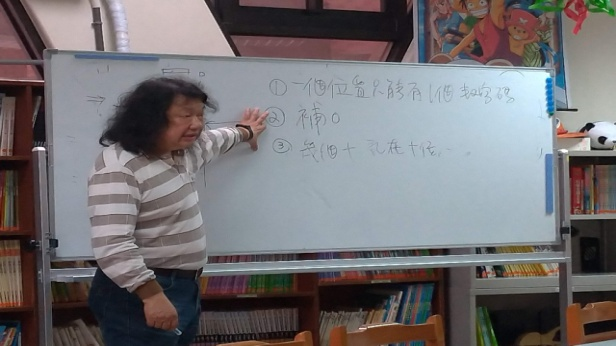 ①一個位置只能有1個數字碼
②補0
③幾個十 記在十位